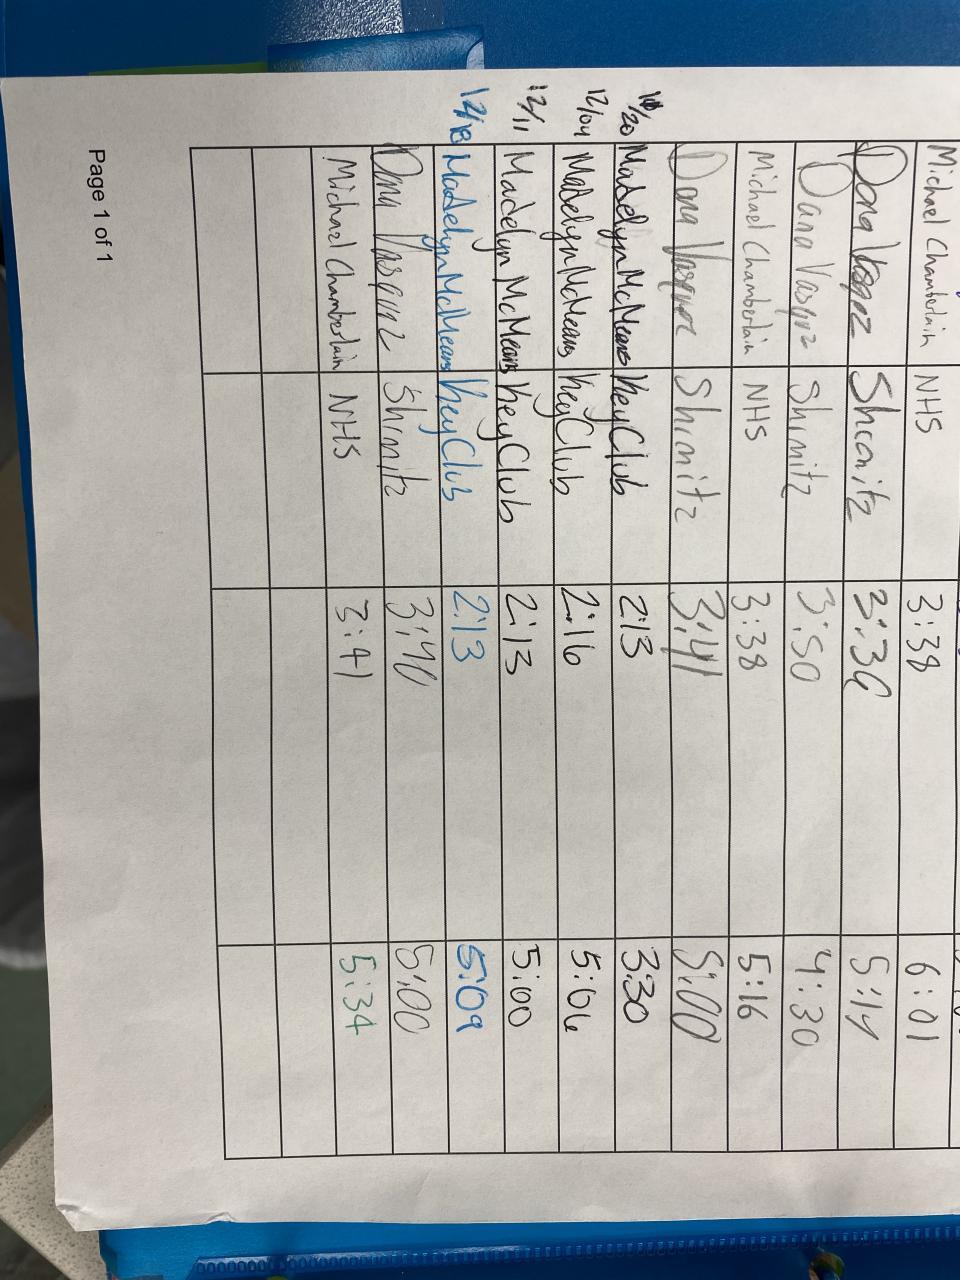 Michael Chamberlain NHS 3:38 6:01
Dana 3:36 5:14
Dana Vasquz Shimitz 3:50 4:30
Michael Chamberlain NHS 3:38 5:16
Dana Shimitz 3:41 5:00
/20 Madelyn McMeans Key Club 2:13 3:30
12/04 Madelyn McMeans Key Club 2:16 5:06
12/11 Madelyn McMeans Key Club 2:13 5:00
12/18 Madelyn McMeans Key Club 2:13 5:09
Dana Vasquz Shimitz 3:40 5:00
Michael Chamberlain NHS 3:41 5:34
Page 1 of 1